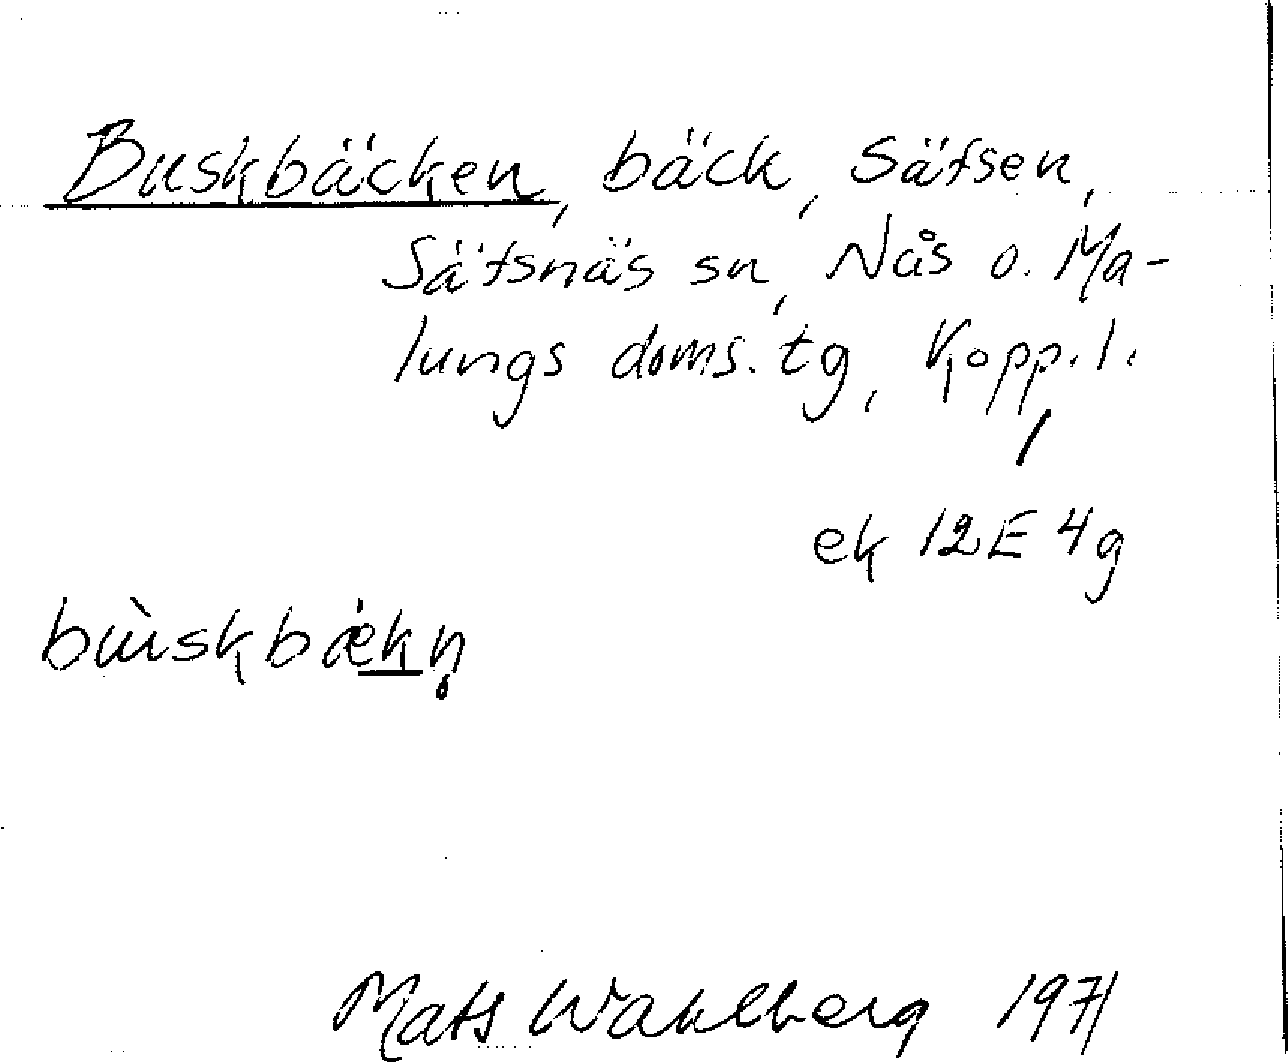 Buskbäcken, bäck, Säfsen,
Säfsnäs sn, Nås o. Ma-
lungs doms. tg, Kopp. l.
ek 12E 4g
bùskbækn̥
Mats Wahlberg 1971